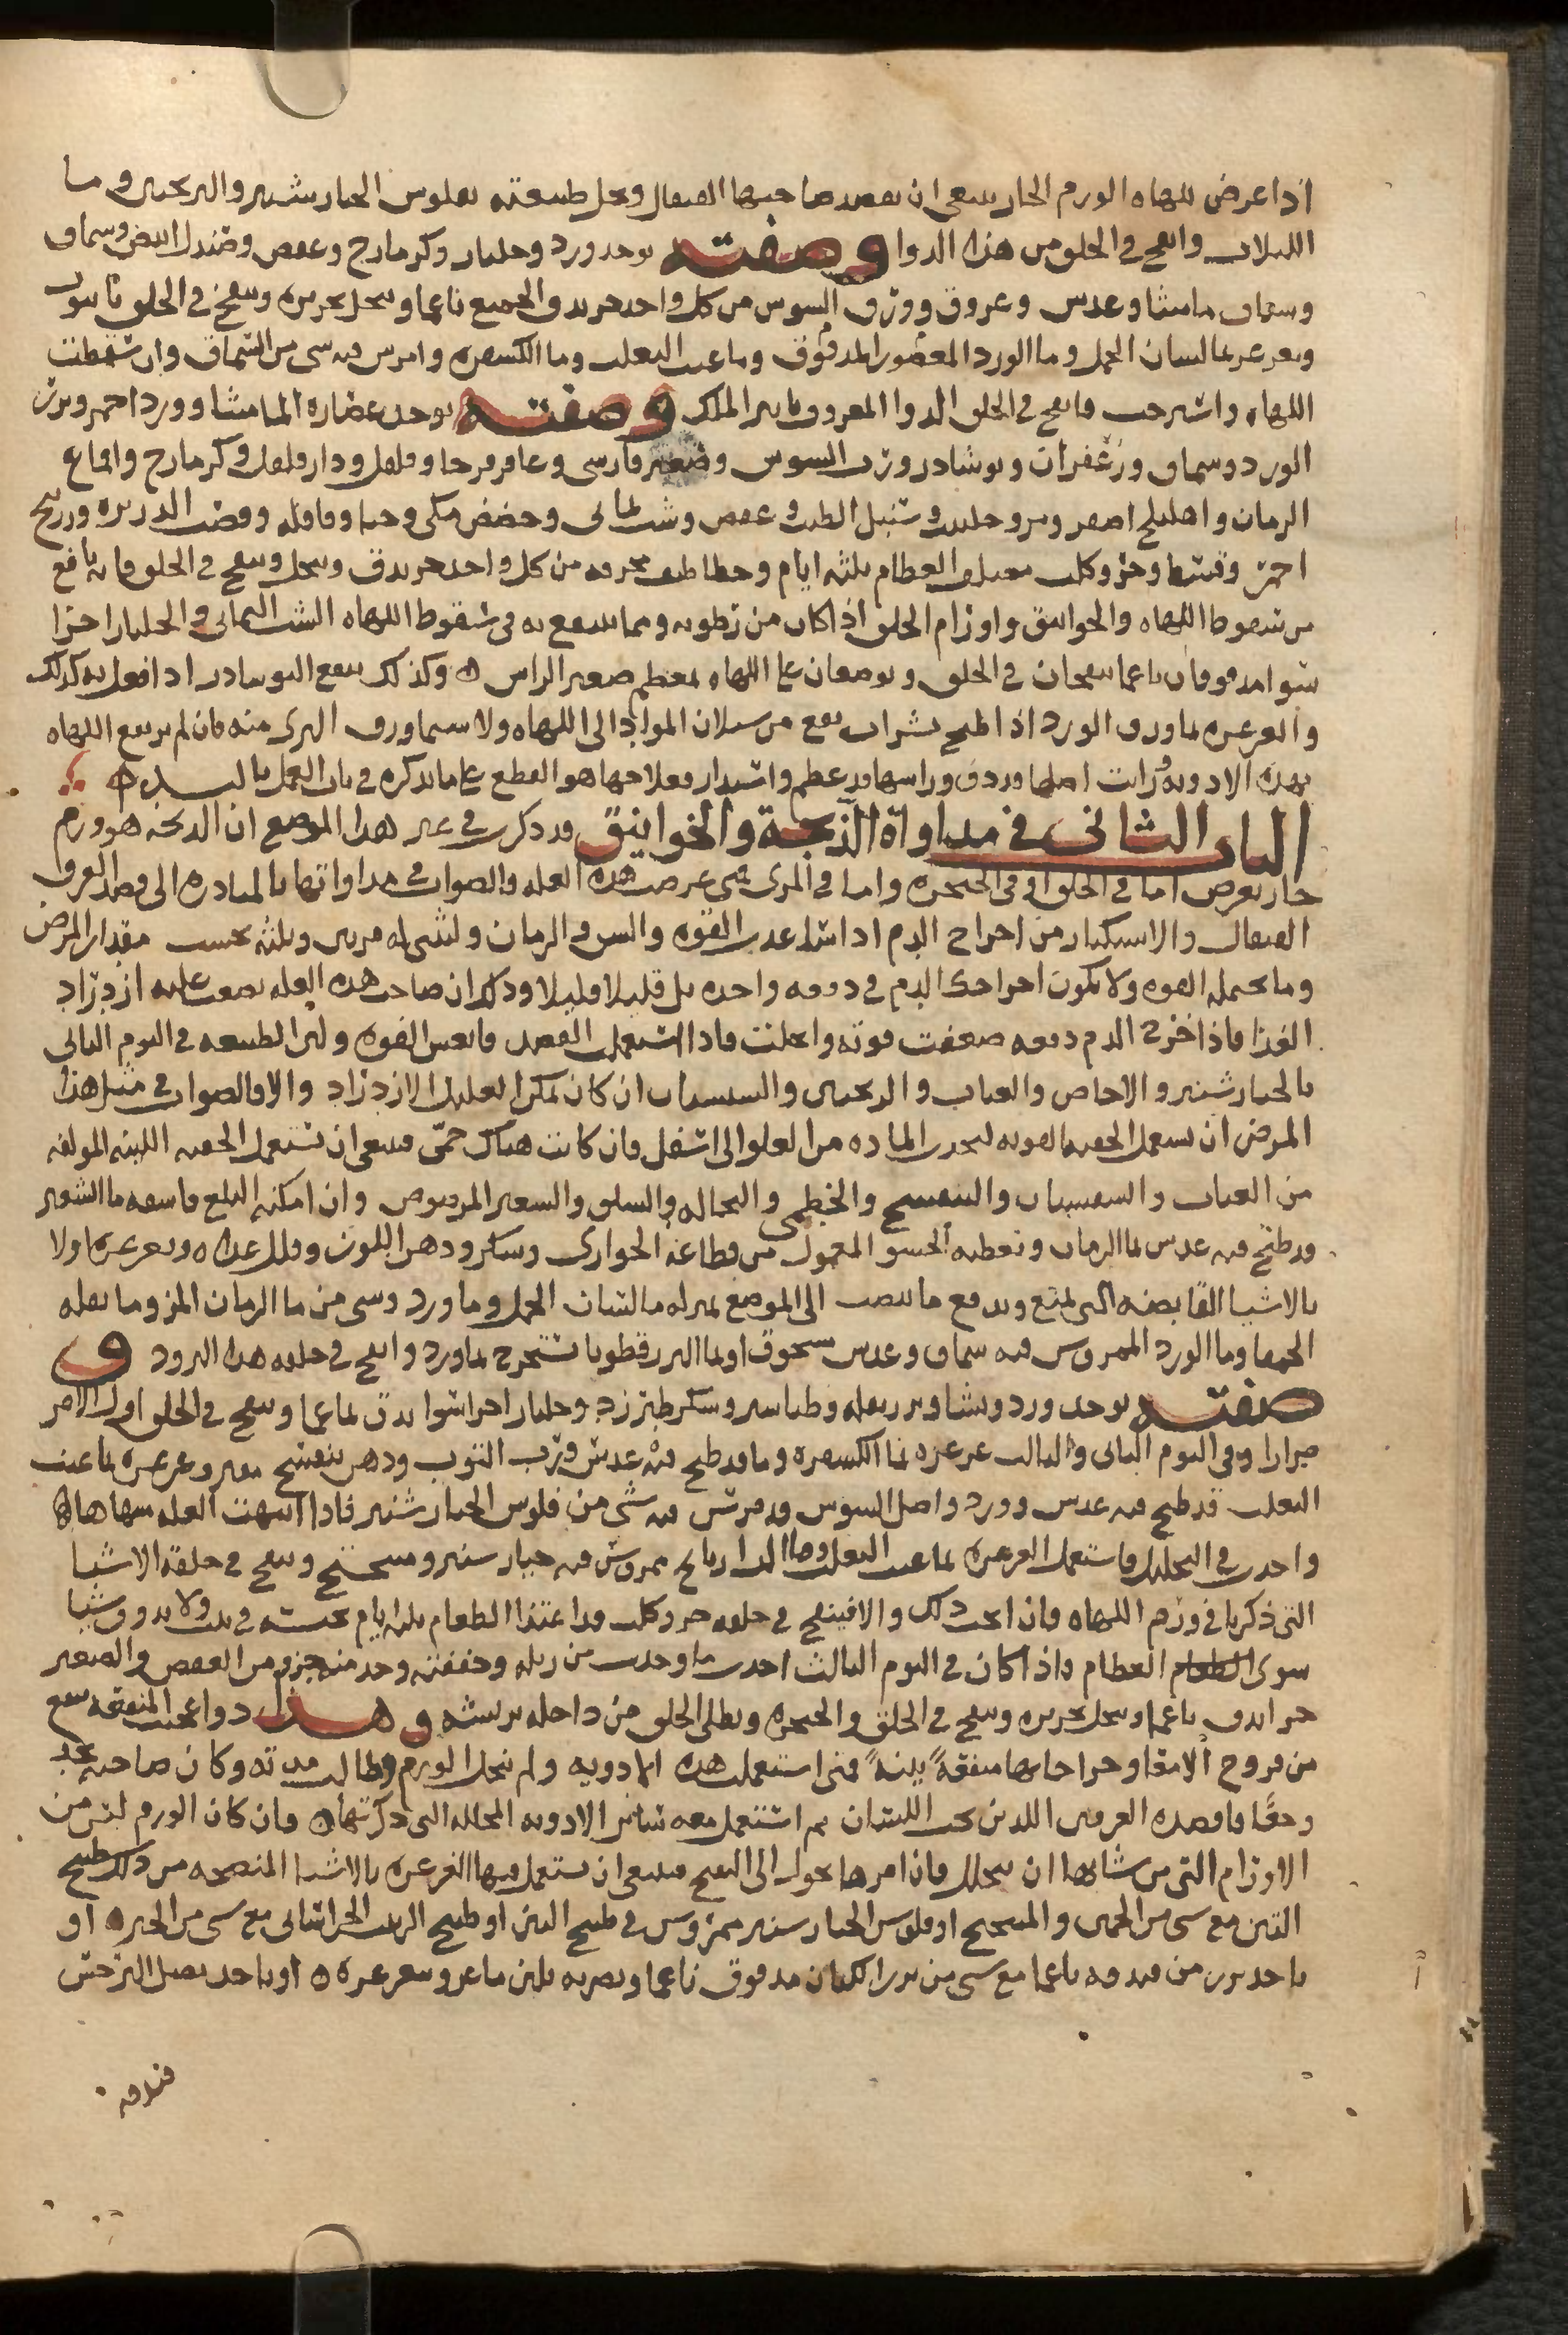 اذا عرض للهاه الورم الحار ينبغى ان يفصد صاحبها القيفال ويحل طبيعته بفلوس الخيار شنبر والترنجبين وما
اللبلاب وانفخ فى الحلق من هذا الدوا وصفته يوخذ ورد وجلنار وكزمازج وعفص وصندل ابيض وسماق
وسماق ماميثا وعدس وعروق وورق السوس من كل واحد جز يدق الجميع ناعما وينخل بحريره وينفخ فى الحلق بانبوب
ويغرغر بما لسان الحمل وما الورد المعصور المدقوق وما عنب الثعلب وما الكسفره وامرس فيه شى من السماق وان سقطت
اللهاه واسترخت فانفخ فى الحلق الدوا المعروف بابن الملك وصفته يوخذ عصاره الماميثا وورد احمر وبزر
الورد وسماق وزعفران ونوشادر ورب السوس وصعتر فارسى وعاقرقرحا وفلفل ودار فلفل وكزمازج واقماع
الرمان واهليلج اصفر ومر وحلتيت وسنبل الطيب وعفص وشب يمانى وحضض مكى وحنا وقاقله وقصب الذريره وزرنيخ
احمر وقسط وخرو كلب معتلف العظام ثلثه ايام وخطاطيف محرقه من كل واحد جز يدق وينخل وينفخ فى الحلق فانه نافع
من سقوط اللهاه والخوانيق واورام الحلق اذا كان من رطوبه ومما ينتفع به فى سقوط اللهاه الشب اليمانى والجلنار اجزا
سوا مدقوقان ناعما ينفخان فى الحلق ويوضعان على اللهاه بمعظم صغير الراس ه وكذلك ينفع النوشادر اذا فعل به كذلك
والغرغره بما ورق الورد اذا طبخ بشراب يقع من سيلان المواد الى اللهاه ولا سيما ورق البرى منه فان لم يرتفع اللهاه
بهذه الادويه ورايت اصلها قد دق وراسها قد عظم واستدار فعلاجها هو القطع على ما نذكره فى باب العمل باليد ه
الباب الثانى فى مداواة الذبحة والخوانيق قد ذكرت فى غير هذا الموضع ان الذبحه هو ورم
حار يعرض اما فى الحلق او فى الحنجره واما فى المرى متى عرضت هذه العله فالصواب فى مداواتها بالمبادره الى فصد العرق
القيفال والاستكثار من اخراج الدم اذا ساعدت القوه والسن والزمان وليثنى له مرتين وثلثه بحسب مقدار المرض
وما يحتمله القوه ولا يكون اخراجك الدم فى دفعه واحده بل قليلا قليلا وذلك ان صاحب هذه العله يصعب عليه ازدراد
الغذا فاذا خرج الدم دفعه ضعفت قوته وانحلت فاذا استعملت الفصد فانعش القوه ولين الطبيعه فى اليوم الثانى
بالخيار شنبر والاجاص والعناب والترنجبين والسبستان ان كان يمكن العليل الازدراد والا فالصواب فى مثل هذا
المرض ان يستعمل الحقنه القويه لتجذب الماده من العلو الى اسفل فان كانت هناك حمّى فينبغى ان تستعمل الحقنه اللينه المولفه
من العناب والسبستان والبنفسج والخطمى والنخاله والسلق والشعير المرضوض وان امكنه البلع فاسقه ما الشعير
قد طبخ فيه عدس بما الرمان وتعطيه الحسو المعمول من قطاعه الحوارى وسكر ودهن اللوز وقلل غذاه ويغرغره اولا
بالاشيا القابضه التى تمنع وتدفع ما ينصب الى الموضع بمنزله ما لسان الحمل وما ورد وشى من ما الرمان المز وما بقله
الحمقا وما الورد الممروس فيه سماق وعدس مسحوق او بما البزرقطونا تستخرج بماورد وانفخ فى حلقه هذا البرود و
صفته يوخذ ورد ونشا وبزر بقله وطباشير وسكر طبرزد وجلنار اجزا سوا يدق ناعما وينفخ فى الحلق اول الامر
مرارا وفى اليوم الثانى والثالث غرغره بما الكسفره وما قد طبخ فيه عدس ورب التوت ودهن بنفسج مفتر وغرغره بما عنب
الثعلب قد طبخ فيه عدس وورد واصل السوس قد مرس فيه شى من فلوس الخيار شنبر فاذا انتهت العله منتهاها
واخذت فى التحليل فاستعمل الغرغره بما عنب الثعلب وما الرازيانج ممروس فيه خيار شنبر وميبختج وينفخ فى حلقه الاشيا
التى ذكرنا فى ورم اللهاه فان انجب ذلك والا فينفخ فى حلقه خرو كلب قد اغتذا الطعام ثلثه ايام تحبسه فى بيت ولا يذوق شيا
سوى العظام فاذا كان فى اليوم الثالث اخذت ما وجدت من زبله وجففته وخذ منه جزو من العفص والصعتر
جز ايدق ناعما وينخل بحريره وينفخ فى الحلق والحنجره ويطلى الحلق من داخله بريشه وهذا دوا عجيب المنفعه ينفع
من قروح الامعا وجراحاتها منفعةً بينةً فمتى استعملت هذه الادويه ولم ينحل الورم وطالت مدته وكان صاحبه يجد
وجعًا فافصده العرقين اللذين تحت اللسان ثم استعمل معه سائر الادويه المحلله التى ذكرتها ه فان كان الورم ليس من
الاورام التى من شانها ان تتحلل فان امرها يوول الى التقيح فينبغى ان تستعمل فيها الغرغره بالاشيا المنضجه من ذلك طبيخ
التين مع شى من الخمير والميبختج او فلوس الخيار شنبر ممروس فى طبيخ التين او طبيخ الزبيب الخراسانى مع شى من الخميره او
ياخذ بزر مر فيدقه ناعما مع شى من بزر الكتان مدقوق ناعما ويضربه بلبن ماعز ويتغرغر ه او ياخذ بصل النرجس
فيدقه